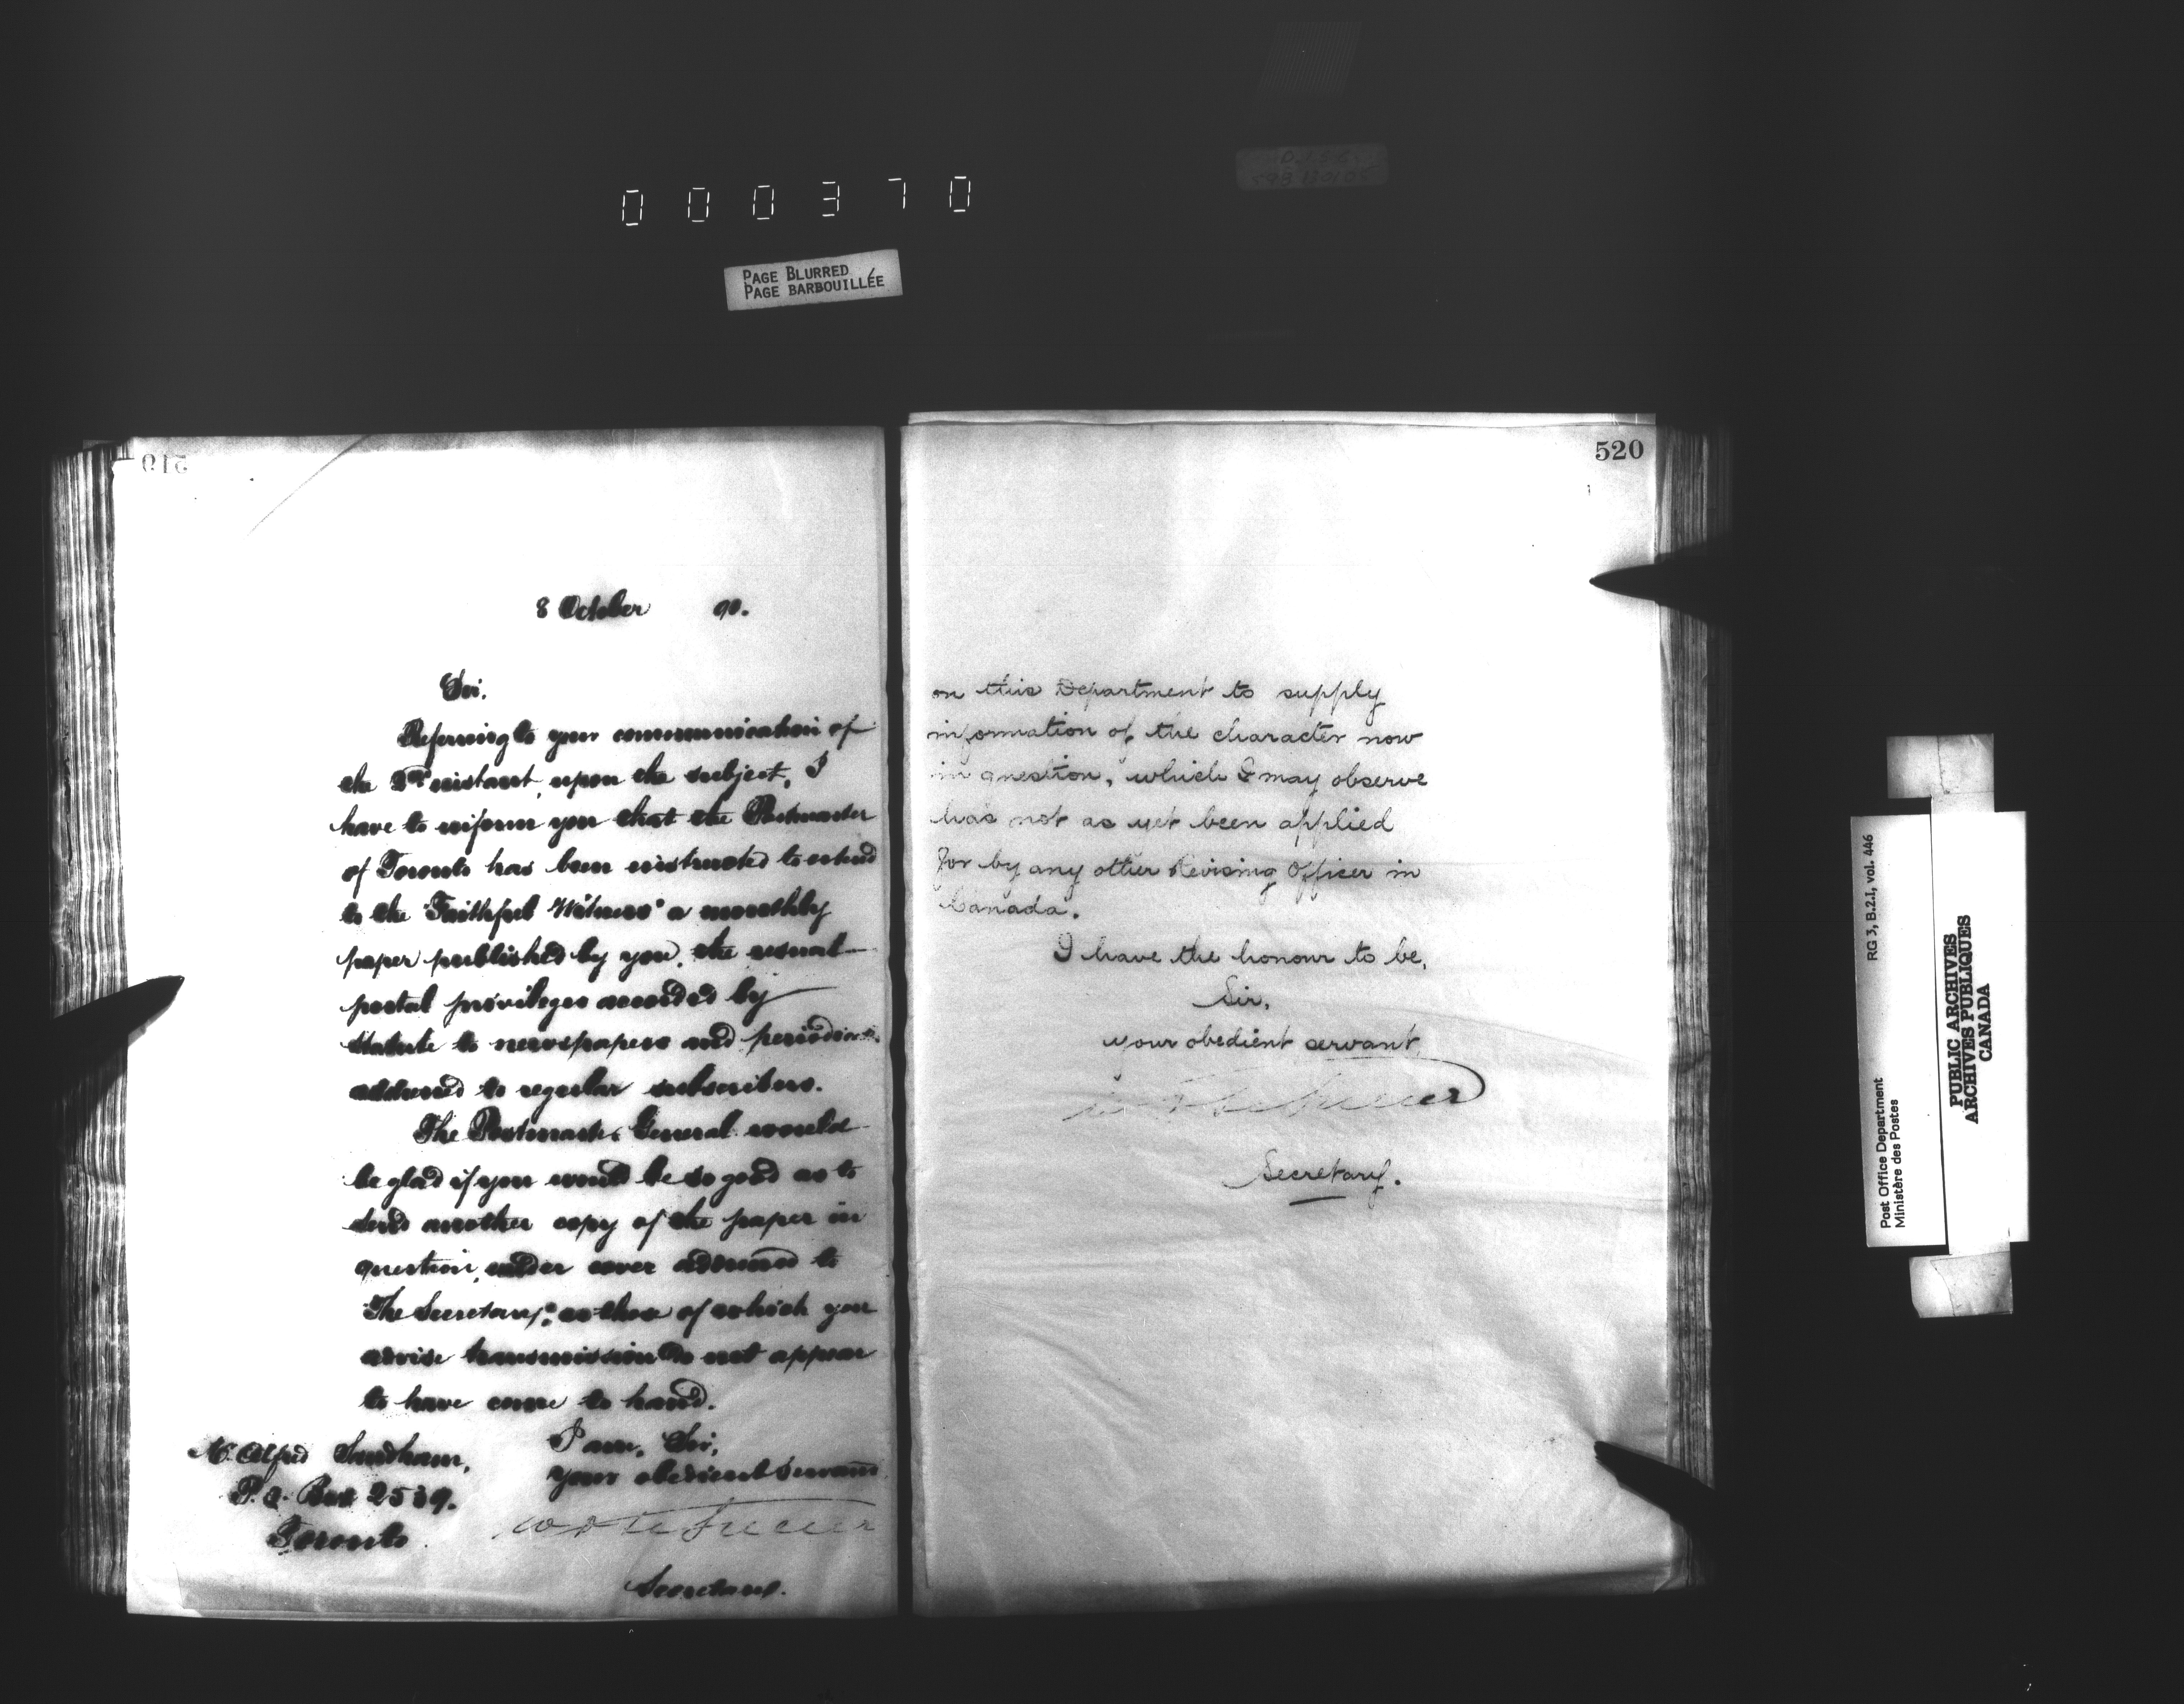 000370
PAGE BLURRED
PAGE BARBOUILLÉE
519
8 October 90.
Sir,
Referring to your communication of
the instant, upon the subject, I
have to inform you that the Postmaster
of Toronto has been instructed to extend
to the "Faithful Witness" a monthly
paper published by you, the usual
postal privileges accorded by
Statute to newspapers and periodicals
addressed to regular subscribers.
The Postmaster General would
be glad if you would be so good as to
send another copy of the paper in
question, under cover addressed to
"The Secretary", as those of which you
advise transmission do not appear
to have come to hand.
I am, Sir,
your obedient Servant,
Secretary.
Mr. Alfred Sandham,
P.O. Box 2539.
Toronto
520
on this Department to supply
information of the character now
in question, which I may observe
has not as yet been applied
for by any other Revising Officer in
Canada.
I have the honour to be,
Sir,
your obedient servant,
Secretary.
RG 3, B.2.1, vol. 446
Post Office Department
Ministère des Postes
PUBLIC ARCHIVES
ARCHIVES PUBLIQUES
CANADA